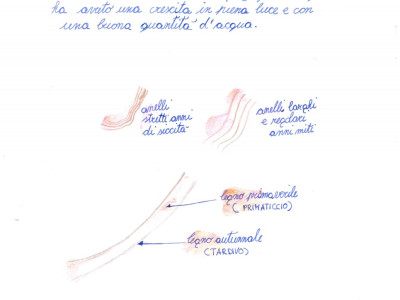 ha avuto una crescita in piena luce e con
una buona quantità d'acqua.
anelli
stretti anni
di siccità
anelli larghi
e regolari
anni miti
legno primaverile
(PRIMATICCIO)
legno autunnale
(TARDIVO)